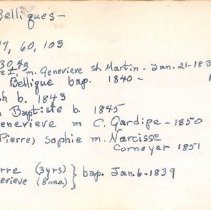 Belliques-
7, 60, 103
30,43
m. Genevieve St. Martin - Jan. 21-183
Bellique bap. 1840-
h b. 1843
Baptiste b. 1845
enevieve m C. Gardipe - 1850
Pierre) Sophie m. Narcisse
Cornoyer 1851
rre (3yrs) } bap. Jan. 6-1839
evieve (8 mos)